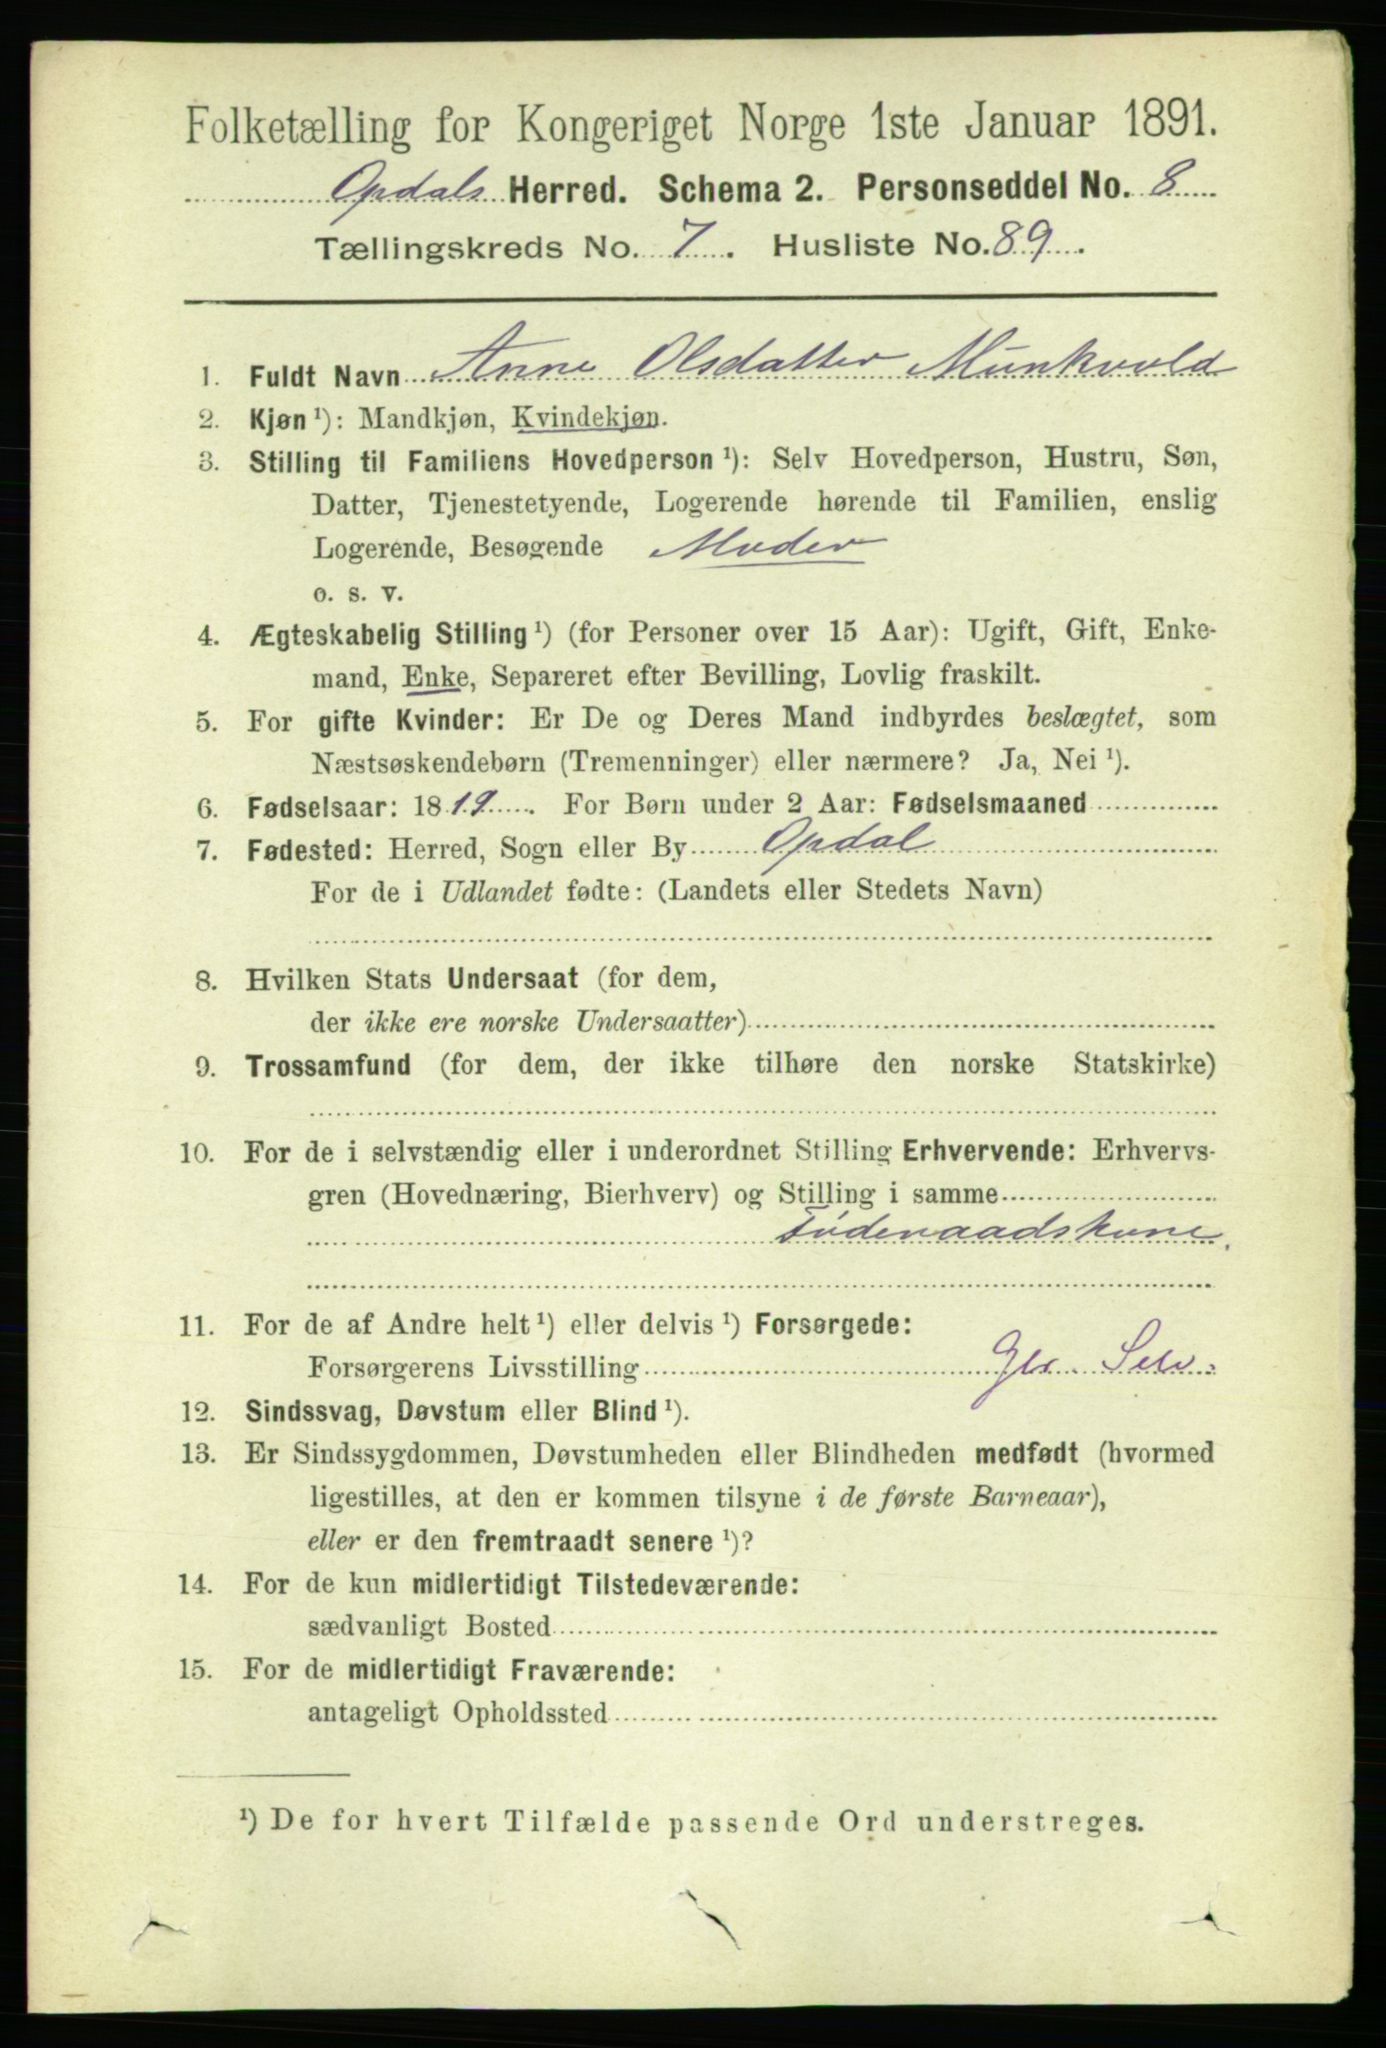 Folketælling for Kongeriget Norge 1ste Januar 1891.
Opdals Herred. Schema 2. Personseddel No. 8
Tællingskreds No. 7. Husliste No. 89.
1. Fuldt Navn Anne Olsdatter Munkvold
2. Kjøn ¹): Mandkjøn, Kvindekjøn.
3. Stilling til Familiens Hovedperson ¹): Selv Hovedperson, Hustru, Søn,
Datter, Tjenestetyende, Logerende hørende til Familien, enslig
Logerende, Besøgende Moder
o. s. v.
4. Ægteskabelig Stilling ¹) (for Personer over 15 Aar): Ugift, Gift, Enke-
mand, Enke, Separeret efter Bevilling, Lovlig fraskilt.
5. For gifte Kvinder: Er De og Deres Mand indbyrdes beslægtet, som
Næstsøskendebørn (Tremenninger) eller nærmere? Ja, Nei ¹).
6. Fødselsaar: 1819. For Børn under 2 Aar: Fødselsmaaned
7. Fødested: Herred, Sogn eller By Opdal
For de i Udlandet fødte: (Landets eller Stedets Navn)
8. Hvilken Stats Undersaat (for dem,
der ikke ere norske Undersaatter)
9. Trossamfund (for dem, der ikke tilhøre den norske Statskirke)
10. For de i selvstændig eller i underordnet Stilling Erhvervende: Erhvervs-
gren (Hovednæring, Bierhverv) og Stilling i samme
Føderaadskone.
11. For de af Andre helt ¹) eller delvis ¹) Forsørgede:
Forsørgerens Livsstilling Selv
12. Sindssvag, Døvstum eller Blind ¹).
13. Er Sindssygdommen, Døvstumheden eller Blindheden medfødt (hvormed
ligestilles, at den er kommen tilsyne i de første Barneaar),
eller er den fremtraadt senere ¹)?
14. For de kun midlertidigt Tilstedeværende:
sædvanligt Bosted
15. For de midlertidigt Fraværende:
antageligt Opholdssted
¹) De for hvert Tilfælde passende Ord understreges.